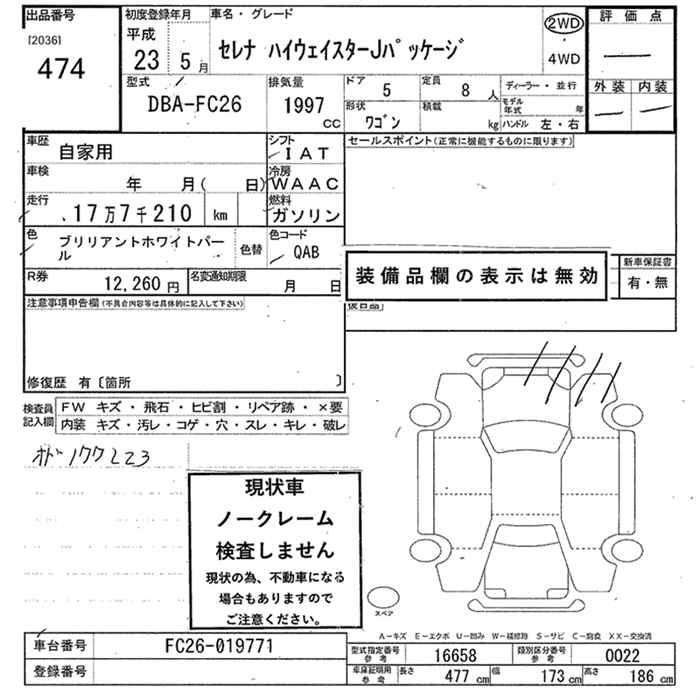 出品番号
[2036]
474
初度登録年月
平成
23 5 月
車名・グレード
セレナ ハイウェイスターJパッケージ
2WD
4WD
評価点
外装 内装
型式
DBA-FC26
排気量
1997
cc
ドア
5
定員
8 人
形状
ワゴン
積載
kg
ディーラー・並行
モデル年式 年
ハンドル 左・右
車歴
自家用
シフト
IAT
車検
年 月( 日)
冷房
WAAC
走行
17万7千210 km
燃料
ガソリン
色
ブリリアントホワイトパール
色替
色コード
QAB
R券
12,260 円
名変通知期限
月 日
セールスポイント(正常に機能するものに限ります)
装備品欄の表示は無効
新車保証書
有・無
注意事項申告欄(不具合内容等は具体的に記入して下さい)
修復歴 有〔箇所 〕
検査員記入欄
FW キズ・飛石・ヒビ割・リペア跡・×要
内装 キズ・汚レ・コゲ・穴・スレ・キレ・破レ
現状車
ノークレーム
検査しません
現状の為、不動車になる
場合もありますので
ご注意ください。
スペア
A-キズ E-エクボ U-凹み W-補修跡 S-サビ C-腐食 XX-交換済
車台番号
FC26-019771
登録番号
型式指定番号
参考
16658
類別区分番号
参考
0022
車庫証明用
参考
長さ
477 cm
幅
173 cm
高さ
186 cm